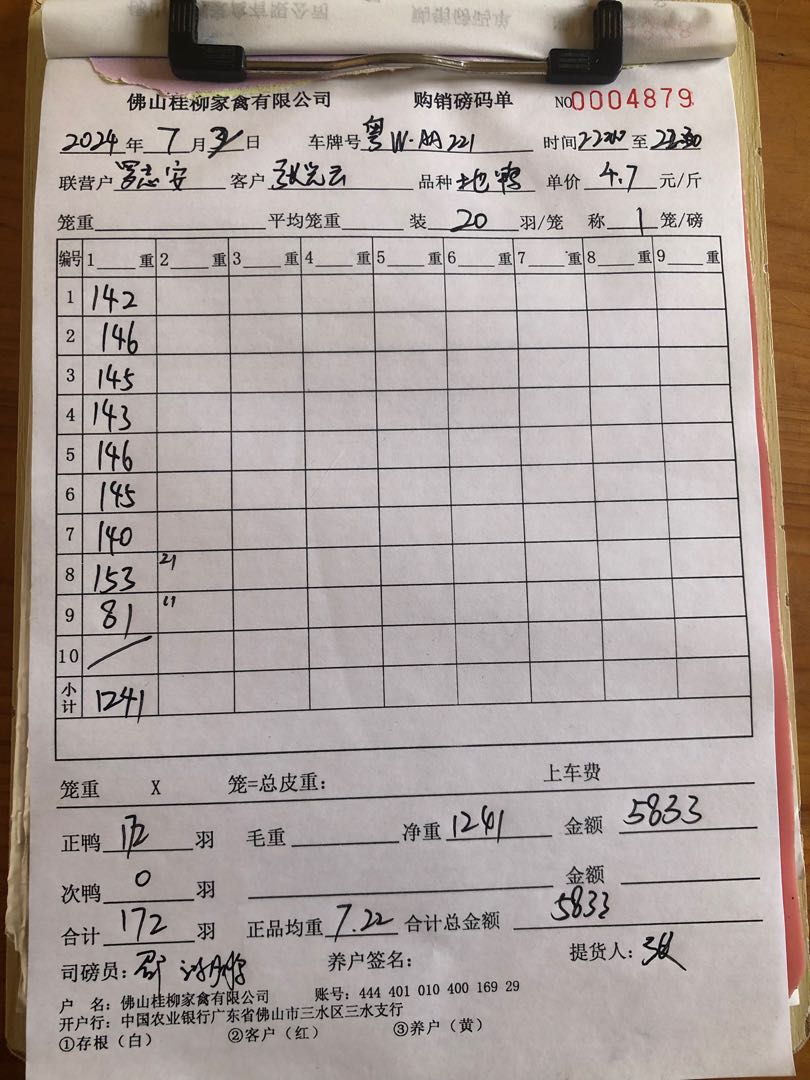 佛山桂柳家禽有限公司 购销磅码单 NO 0004879
2024年7月31日 车牌号 粤W·AA221 时间 至
联营户 罗志安 客户 品种 土鸭 单价 4.7 元/斤
笼重 平均笼重 装 20 羽/笼 称 1 笼/磅
编号 1 重 2 重 3 重 4 重 5 重 6 重 7 重 8 重 9 重
1 142
2 146
3 145
4 143
5 146
6 145
7 140
8 153 21
9 81 11
10 /
小计 1241
笼重 X 笼=总皮重: 上车费
正鸭 172 羽 毛重 净重 1241 金额 5833
次鸭 0 羽 金额
合计 172 羽 正品均重 7.22 合计总金额 5833
司磅员: 养户签名: 提货人:
户 名: 佛山桂柳家禽有限公司 账号: 444 401 010 400 169 29
开户行: 中国农业银行广东省佛山市三水区三水支行
①存根(白) ②客户(红) ③养户(黄)